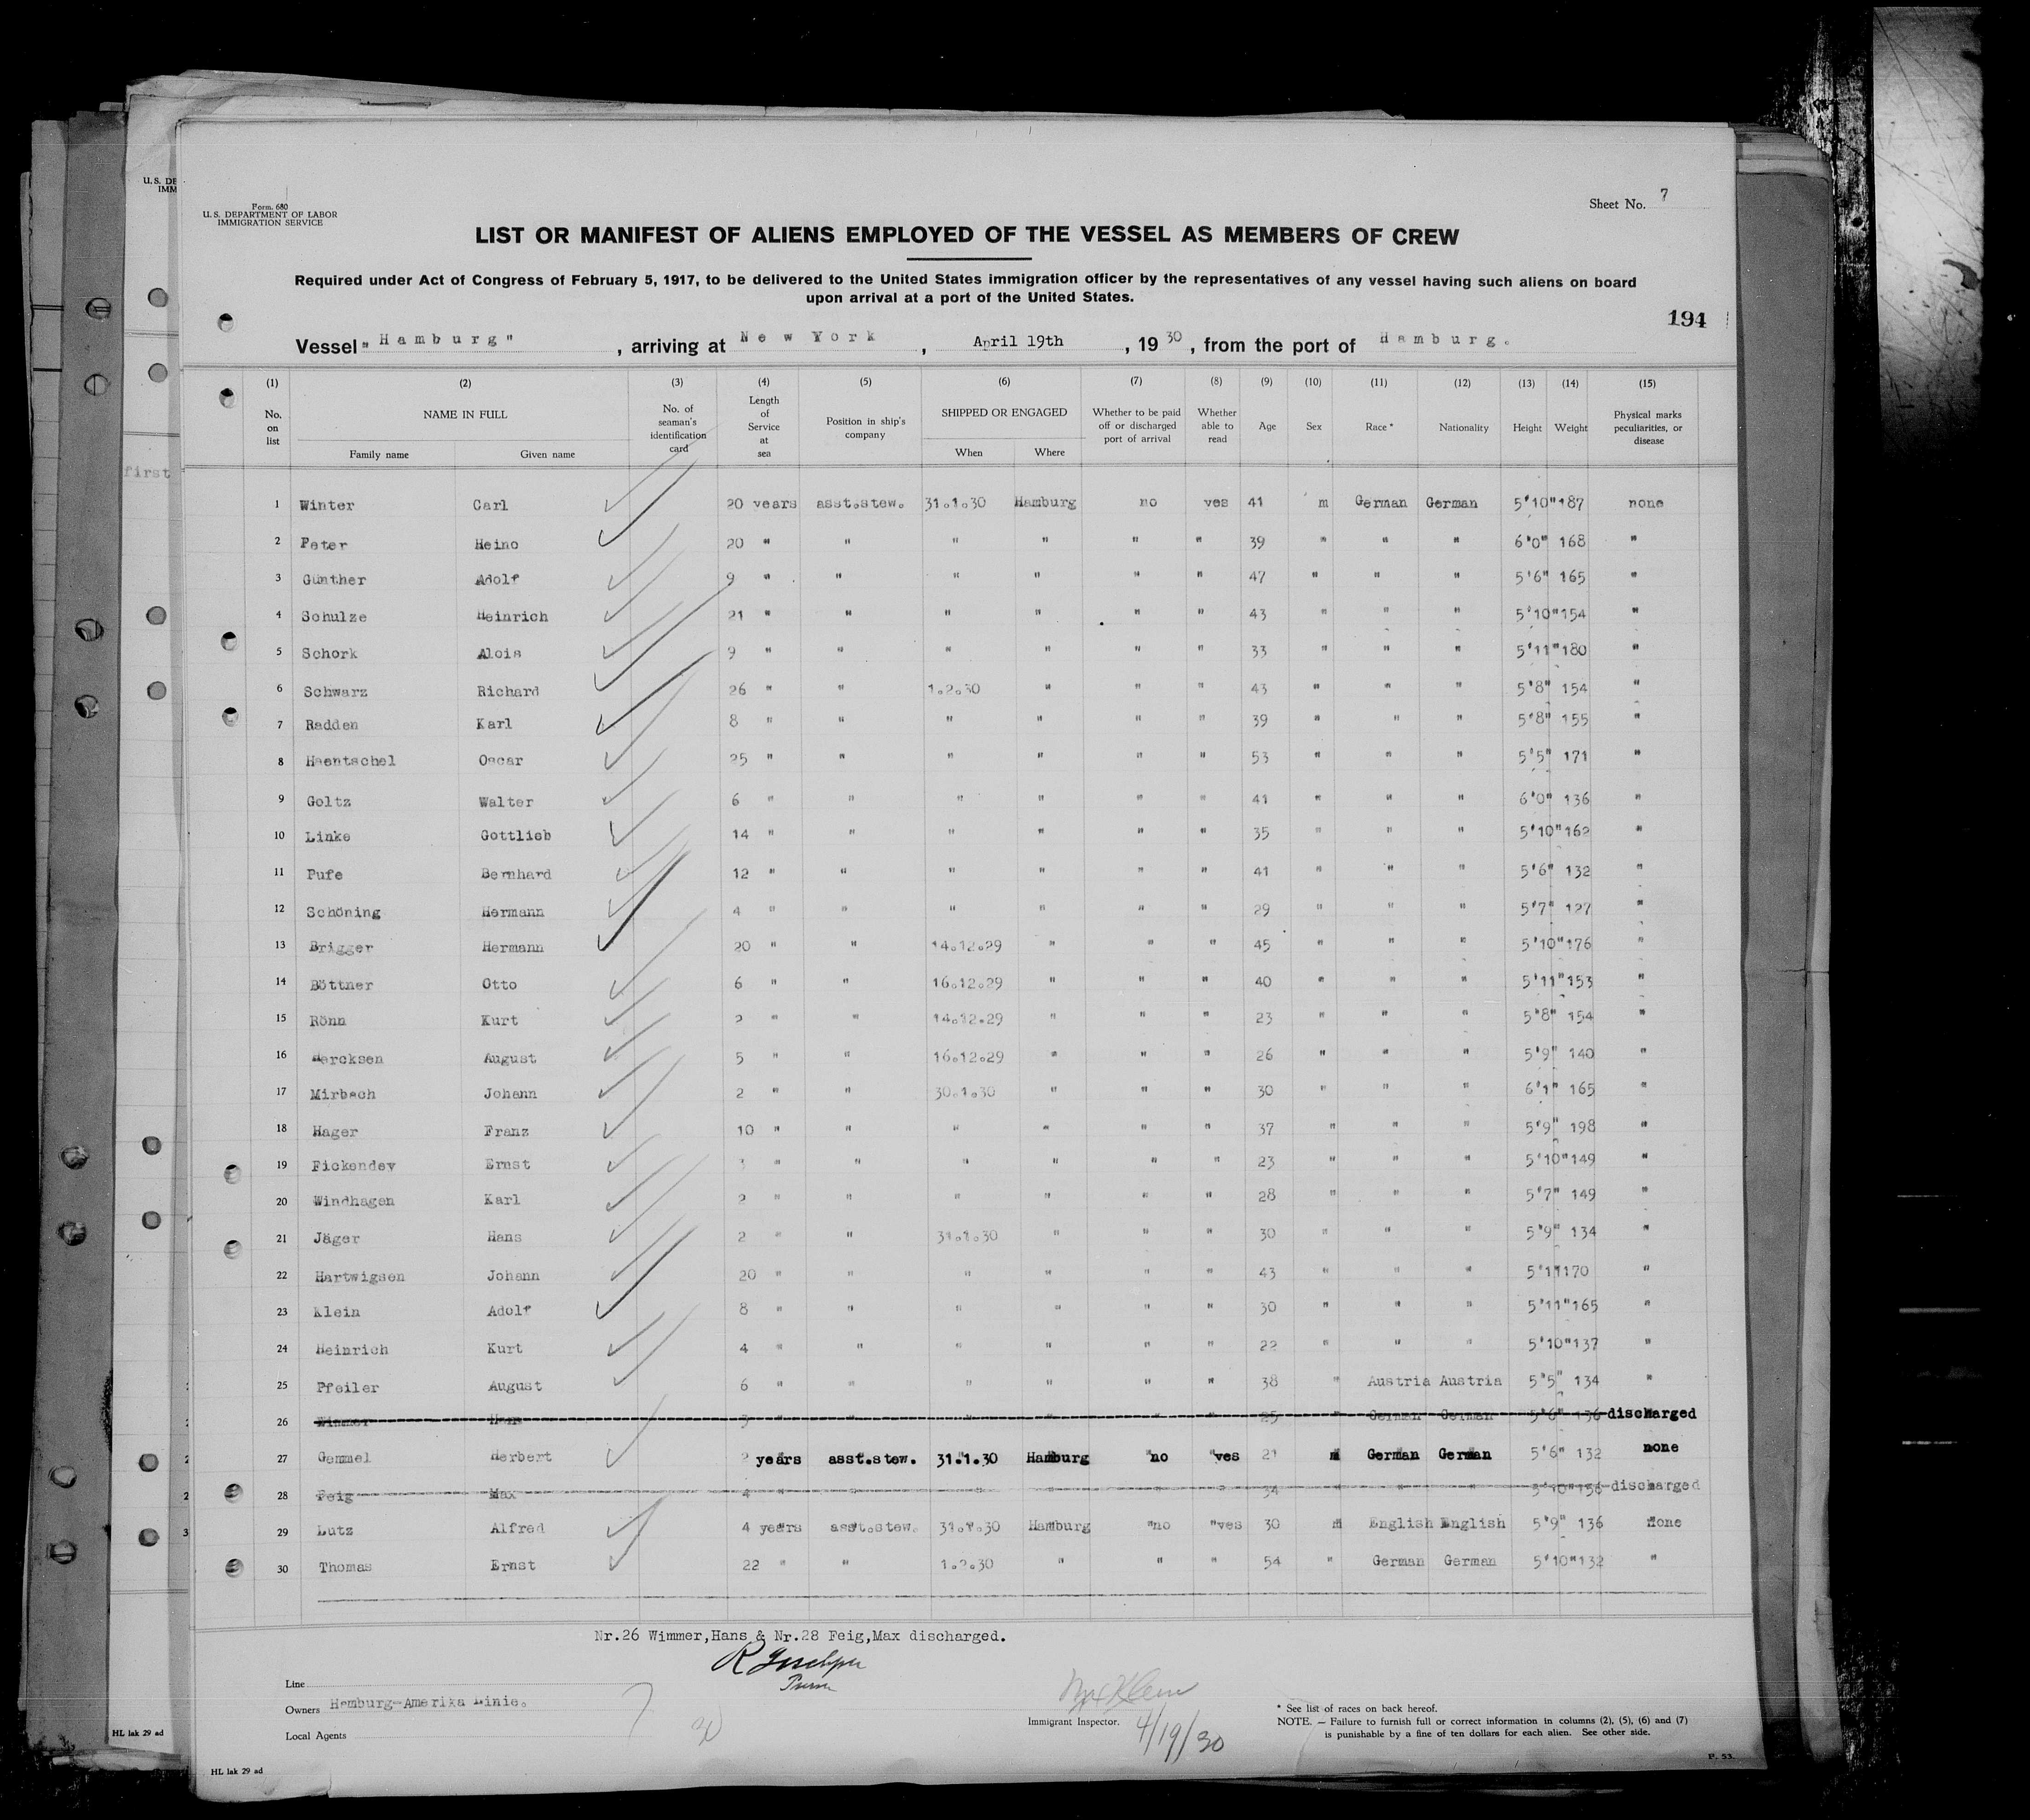 U. S. DE
IMM
Form. 680
U. S. DEPARTMENT OF LABOR
IMMIGRATION SERVICE
Sheet No. 7
LIST OR MANIFEST OF ALIENS EMPLOYED OF THE VESSEL AS MEMBERS OF CREW
Required under Act of Congress of February 5, 1917, to be delivered to the United States immigration officer by the representatives of any vessel having such aliens on board
upon arrival at a port of the United States.
194
Vessel "Hamburg", arriving at New York, April 19th, 1930, from the port of Hamburg.
(1) (2) (3) (4) (5) (6) (7) (8) (9) (10) (11) (12) (13) (14) (15)
No. on list NAME IN FULL Family name Given name No. of seaman's identification card Length of Service at sea Position in ship's company SHIPPED OR ENGAGED When Where Whether to be paid off or discharged port of arrival Whether able to read Age Sex Race * Nationality Height Weight Physical marks peculiarities, or disease
first
1 Winter Carl 20 years asst.stew. 31.1.30 Hamburg no yes 41 m German German 5'10" 187 none
2 Peter Heino 20 " " " " " " 39 " " " 6'0" 168 "
3 Günther Adolf 9 " " " " " " 47 " " " 5'6" 165 "
4 Schulze Heinrich 21 " " " " " " 43 " " " 5'10" 154 "
5 Schork Alois 9 " " " " " " 33 " " " 5'11" 180 "
6 Schwarz Richard 26 " " 1.2.30 " " " 43 " " " 5'8" 154 "
7 Radden Karl 8 " " " " " " 39 " " " 5'8" 155 "
8 Haentschel Oscar 25 " " " " " " 53 " " " 5'5" 171 "
9 Goltz Walter 6 " " " " " " 41 " " " 6'0" 136 "
10 Linke Gottlieb 14 " " " " " " 35 " " " 5'10" 162 "
11 Pufe Bernhard 12 " " " " " " 41 " " " 5'6" 132 "
12 Schöning Hermann 4 " " " " " " 29 " " " 5'7" 127 "
13 Brigger Hermann 20 " " 14.12.29 " " " 45 " " " 5'10" 176 "
14 Böttner Otto 6 " " 16.12.29 " " " 40 " " " 5'11" 153 "
15 Rönn Kurt 2 " " 14.12.29 " " " 23 " " " 5'8" 154 "
16 Hercksen August 5 " " 16.12.29 " " " 26 " " " 5'9" 140 "
17 Mirbach Johann 2 " " 30.1.30 " " " 30 " " " 6'1" 165 "
18 Hager Franz 10 " " " " " " 37 " " " 5'9" 198 "
19 Fickendey Ernst 3 " " " " " " 23 " " " 5'10" 149 "
20 Windhagen Karl 2 " " " " " " 28 " " " 5'7" 149 "
21 Jäger Hans 2 " " 31.1.30 " " " 30 " " " 5'9" 134 "
22 Hartwigsen Johann 20 " " " " " " 43 " " " 5'11 170 "
23 Klein Adolf 8 " " " " " " 30 " " " 5'11" 165 "
24 Heinrich Kurt 4 " " " " " " 22 " " " 5'10" 137 "
25 Pfeiler August 6 " " " " " " 38 " Austria Austria 5'5" 134 "
26 Wimmer Hans 3 " " " " " " 25 " German German 5'6" 136 discharged
27 Gemmel Herbert 2 years asst.stew. 31.1.30 Hamburg no yes 21 m German German 5'6" 132 none
28 Feig Max 4 " " " " " " 34 " " " 5'10" 156 discharged
29 Lutz Alfred 4 years asst.stew. 31.1.30 Hamburg no yes 30 m English English 5'9" 136 none
30 Thomas Ernst 22 " " 1.2.30 " " " 54 " German German 5'10" 132 "
Nr.26 Wimmer,Hans & Nr.28 Feig,Max discharged.
Purser
Line
Owners Hamburg-Amerika Linie.
Local Agents
Klein
Immigrant Inspector.
4/19/30
* See list of races on back hereof.
NOTE. — Failure to furnish full or correct information in columns (2), (5), (6) and (7)
is punishable by a fine of ten dollars for each alien. See other side.
HL lak 29 ad
HL lak 29 ad
P. 53.